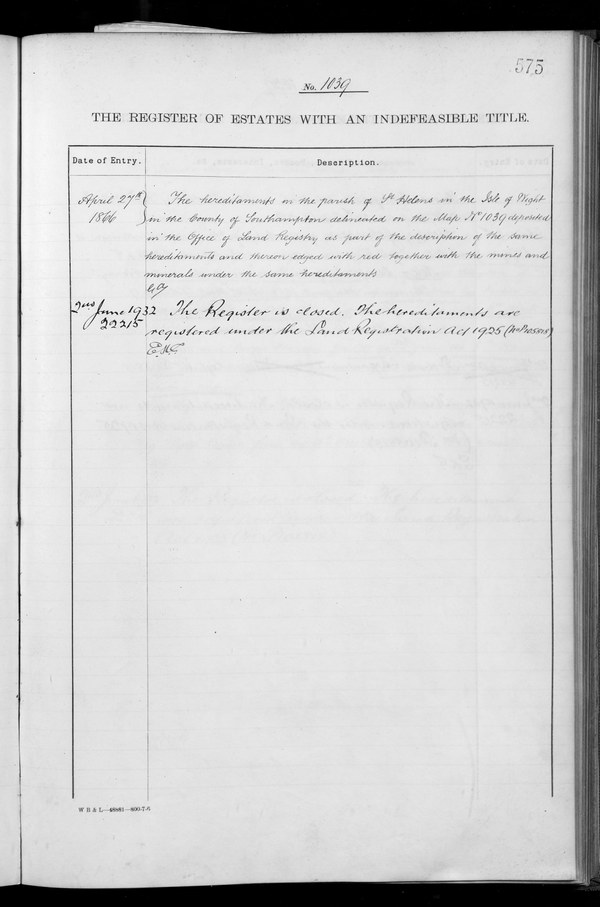 575
No. 1039
THE REGISTER OF ESTATES WITH AN INDEFEASIBLE TITLE.
Date of Entry. Description.
April 27th The hereditaments in the parish of St Helens in the Isle of Wight
1866 in the County of Southampton delineated on the Map No 1039 deposited
in the Office of Land Registry as part of the description of the same
hereditaments and thereon edged with red together with the mines and
minerals under the same hereditaments
2nd June 1932 The Register is closed. The hereditaments are
22215 registered under the Land Registration Act 1925
E.M.C
W B & L—48881—600-7-6